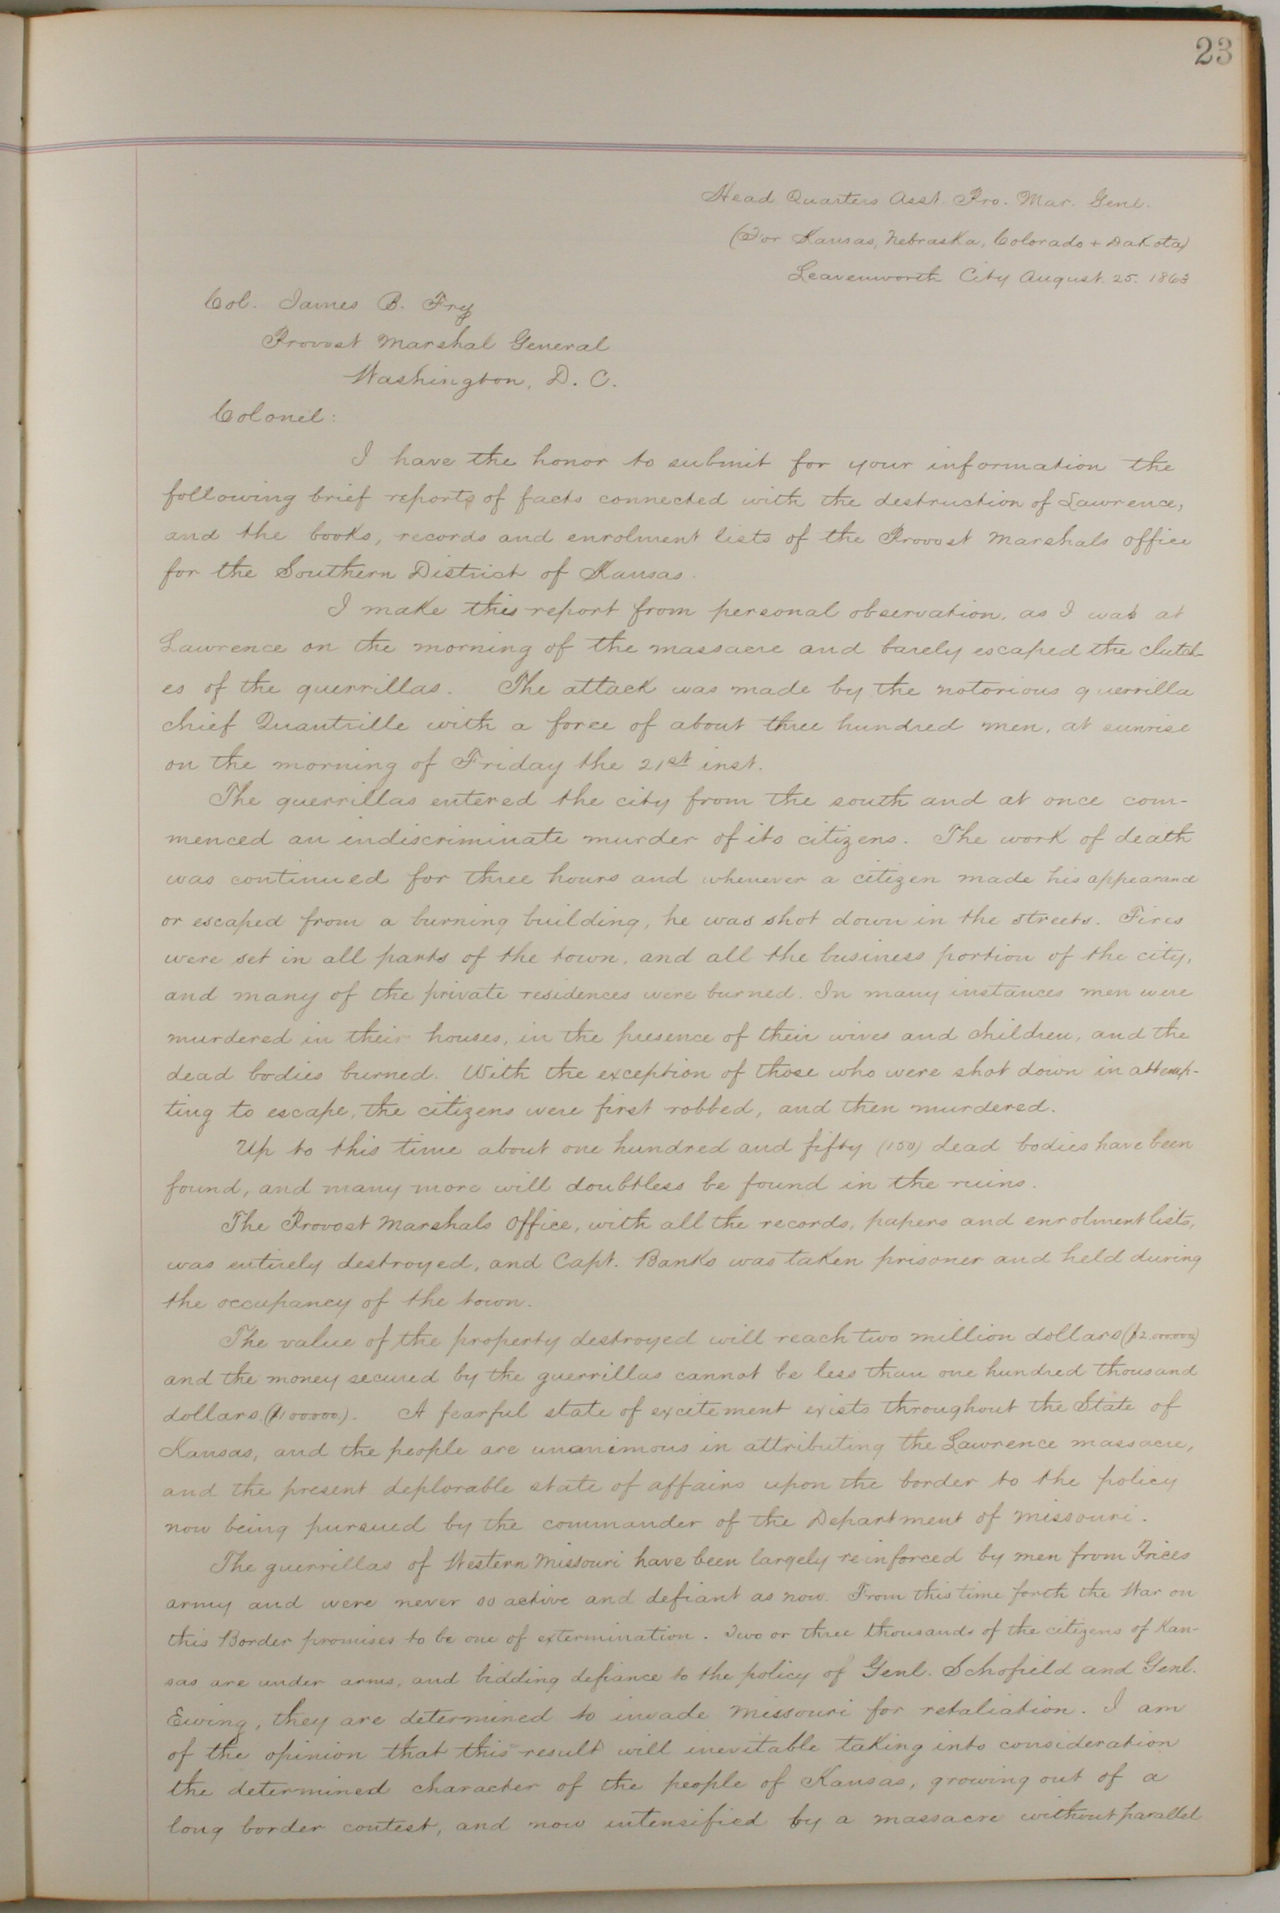 23
Head Quarters Asst. Pro. Mar. Genl.
(For Kansas, Nebraska, Colorado + Dakota)
Leavenworth City August. 25. 1863
Col. James B. Fry
Provost Marshal General
Washington, D. C.
Colonel:
I have the honor to submit for your information the
following brief reports of facts connected with the destruction of Lawrence,
and the books, records and enrolment lists of the Provost Marshals office
for the Southern District of Kansas.
I make this report from personal observation, as I was at
Lawrence on the morning of the massacre and barely escaped the clutch-
es of the guerrillas. The attack was made by the notorious guerrilla
chief Quantrille with a force of about three hundred men, at sunrise
on the morning of Friday the 21st inst.
The guerrillas entered the city from the south and at once com-
menced an indiscriminate murder of its citizens. The work of death
was continued for three hours and whenever a citizen made his appearance
or escaped from a burning building, he was shot down in the streets. Fires
were set in all parts of the town, and all the business portion of the city,
and many of the private residences were burned. In many instances men were
murdered in their houses, in the presence of their wives and children, and the
dead bodies burned. With the exception of those who were shot down in attemp-
ting to escape, the citizens were first robbed, and then murdered.
Up to this time about one hundred and fifty (150) dead bodies have been
found, and many more will doubtless be found in the ruins.
The Provost Marshals Office, with all the records, papers and enrolment lists,
was entirely destroyed, and Capt. Banks was taken prisoner and held during
the occupancy of the town.
The value of the property destroyed will reach two million dollars ($2.000000)
and the money secured by the guerrillas cannot be less than one hundred thousand
dollars ($100000). A fearful state of excitement exists throughout the State of
Kansas, and the people are unanimous in attributing the Lawrence massacre,
and the present deplorable state of affairs upon the border to the policy
now being pursued by the commander of the Department of Missouri.
The guerrillas of Western Missouri have been largely reinforced by men from Prices
army and were never so active and defiant as now. From this time forth the War on
this Border promises to be one of extermination. Two or three thousands of the citizens of Kan-
sas are under arms, and bidding defiance to the policy of Genl. Schofield and Genl.
Ewing, they are determined to invade Missouri for retaliation. I am
of the opinion that this result will inevitable taking into consideration
the determined character of the people of Kansas, growing out of a
long border contest, and now intensified by a massacre without parallel